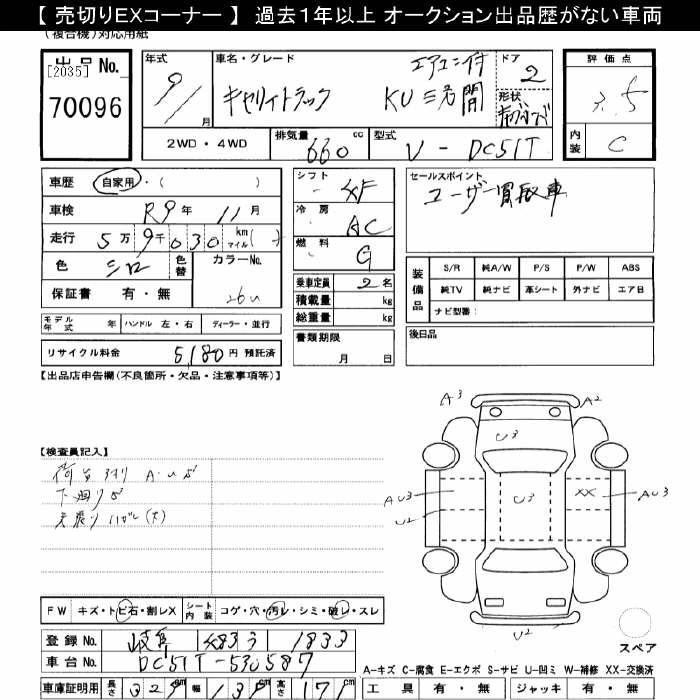 【 売切りEXコーナー 】 過去1年以上 オークション出品歴がない車両
(複合機)対応用紙
出品 No.
[2035]
70096
年式
9/
月
車名・グレード
キャリイトラック
エアコン付
KU 三方開
ドア
2
形状
評価点
3.5
内装
C
2WD・4WD
排気量
660
cc
型式
V-DC51T
車歴 自家用・( )
車検 R9年 11月
走行 5万9千030 km マイル( )
色 シロ 色替 カラーNo. 26U
保証書 有・無
シフト 4F
冷房 AC
燃料 G
乗車定員 2名
積載量 kg
総重量 kg
書類期限
月 日
セールスポイント
ユーザー買取車
装備品
S/R 純A/W P/S P/W ABS
純TV 純ナビ 革シート 外ナビ エアB
ナビ型番:
後日品
モデル年式 年 ハンドル 左・右 ディーラー・並行
リサイクル料金 5,180円 預託済
【出品店申告欄(不良箇所・欠品・注意事項等)】
【検査員記入】
荷台 A・U
下回り
天張りハガレ(大)
A3 A2
U3
AU3 U3 XX AU3
U2
U2
スペア
FW キズ・トビ石・割レX シート内装 コゲ・穴・汚レ・シミ・破レ・スレ
登録 No. 岐阜 483 う 1833
車台 No. DC51T-530587
車庫証明用 長さ 329cm 幅 139cm 高さ 171cm
A-キズ C-腐食 E-エクボ S-サビ U-凹ミ W-補修 XX-交換済
工具 有・無 ジャッキ 有・無